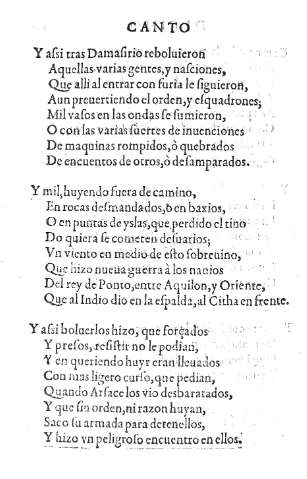 CANTO
Y assi tras Damasirio reboluieron
Aquellas varias gentes, y nasciones,
Que alli al entrar con furia le siguieron,
Aun preuertiendo el orden, y esquadrones;
Mil vasos en las ondas se sumieron,
O con las varias suertes de inuenciones
De maquinas rompidos, ò quebrados
De encuentos de otros, ò desamparados.
Y mil, huyendo fuera de camino,
En rocas desmandados, ò en baxios,
O en puntas de yslas, que perdido el tino
Do quiera se cometen desuarios;
Vn viento en medio de esto sobreuino,
Que hizo nueua guerra à los nauios
Del rey de Ponto, entre Aquilon, y Oriente,
Que al Indio dio en la espalda, al Citha en frente.
Y assi boluerlos hizo, que forçados
Y presos, resistir no le podian,
Y en queriendo huyr eran lleuados
Con mas ligero curso, que pedian,
Quando Arsace los vio desbaratados,
Y que sin orden, ni razon huyan,
Saco su armada para detenellos,
Y hizo vn peligroso encuentro en ellos.